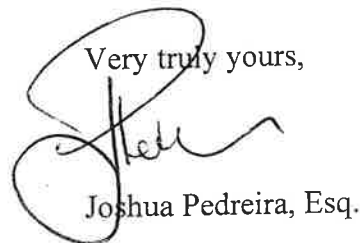 Very truly yours,
Joshua Pedreira, Esq.